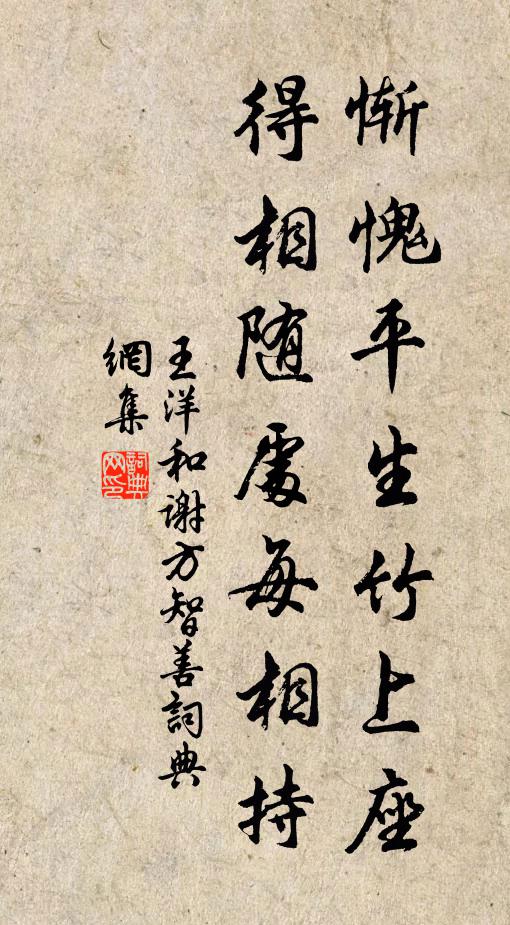 慚愧平生竹上座
得相随處每相持
王洋和谢方智善詞典
網集
詞典網印